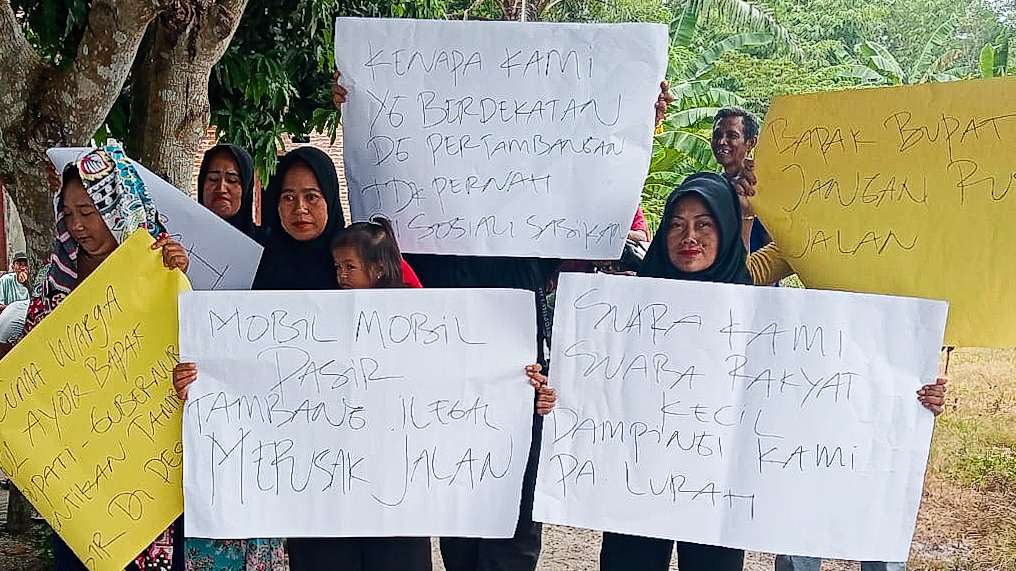 KENAPA KAMI
YG BERDEKATAN
DG PERTAMBANGAN
TDK PERNAH
DI SOSIALISASIKAN
BAPAK BUPAT
JANGAN RUS
JALAN
CUMA WARGA
AYOK BAPAK
PATI - GUBERNUR
NTIKAN TAMB
IR DI DES
MOBIL MOBIL
PASIR
TAMBANG ILEGAL
MERUSAK JALAN
SUARA KAMI
SUARA RAKYAT
KECIL
DAMPINGI KAMI
PA. LURAH